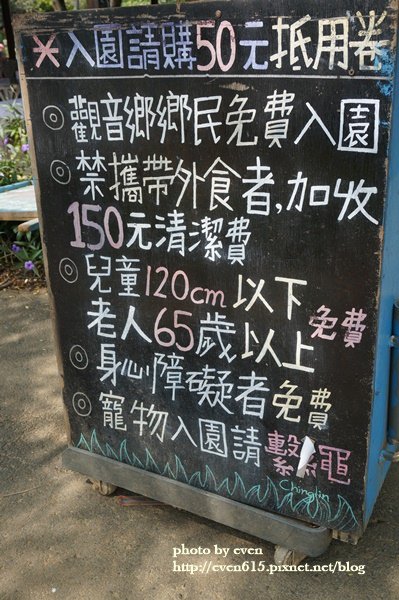 *入園請購50元抵用券
◎觀音鄉鄉民免費入園
◎禁攜帶外食者,加收
150元清潔費
◎兒童120cm以下
老人65歲以上 免費
◎身心障礙者免費
◎寵物入園請繫繩
Chinglin
photo by even
http://even615.pixnet.net/blog